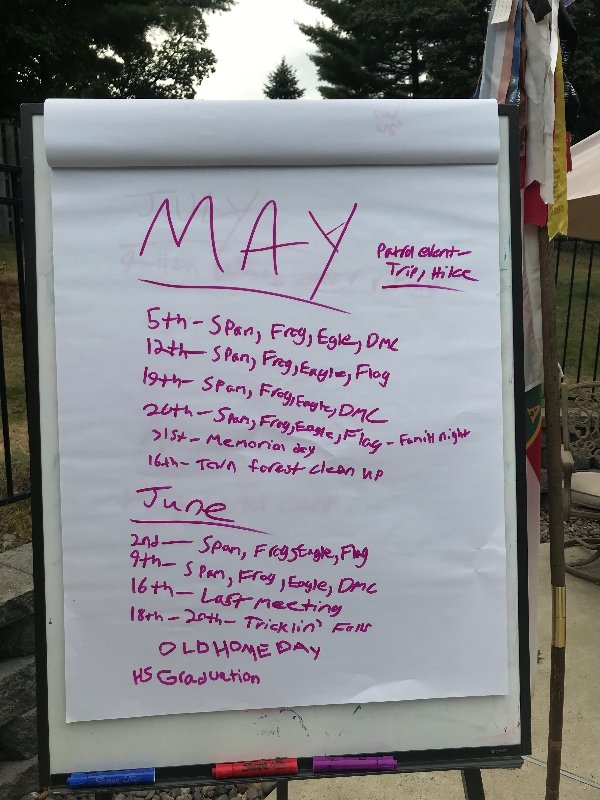 MAY
Patrol event-
Trip, Hike
5th - Span, Frog, Egle, DMC
12th - Span, Frog, Eagle, Flag
19th - Span, Frog, Eagle, DMC
26th - Span, Frog, Eagle, Flag - Famill night
31st - Memorial day
16th - Town forest clean up
June
2nd - Span, Frog, Eagle, Flag
9th - Span, Frog, Eagle, DMC
16th - Last meeting
18th - 20th - Tricklin' Falls
OLD HOME DAY
HS Graduation